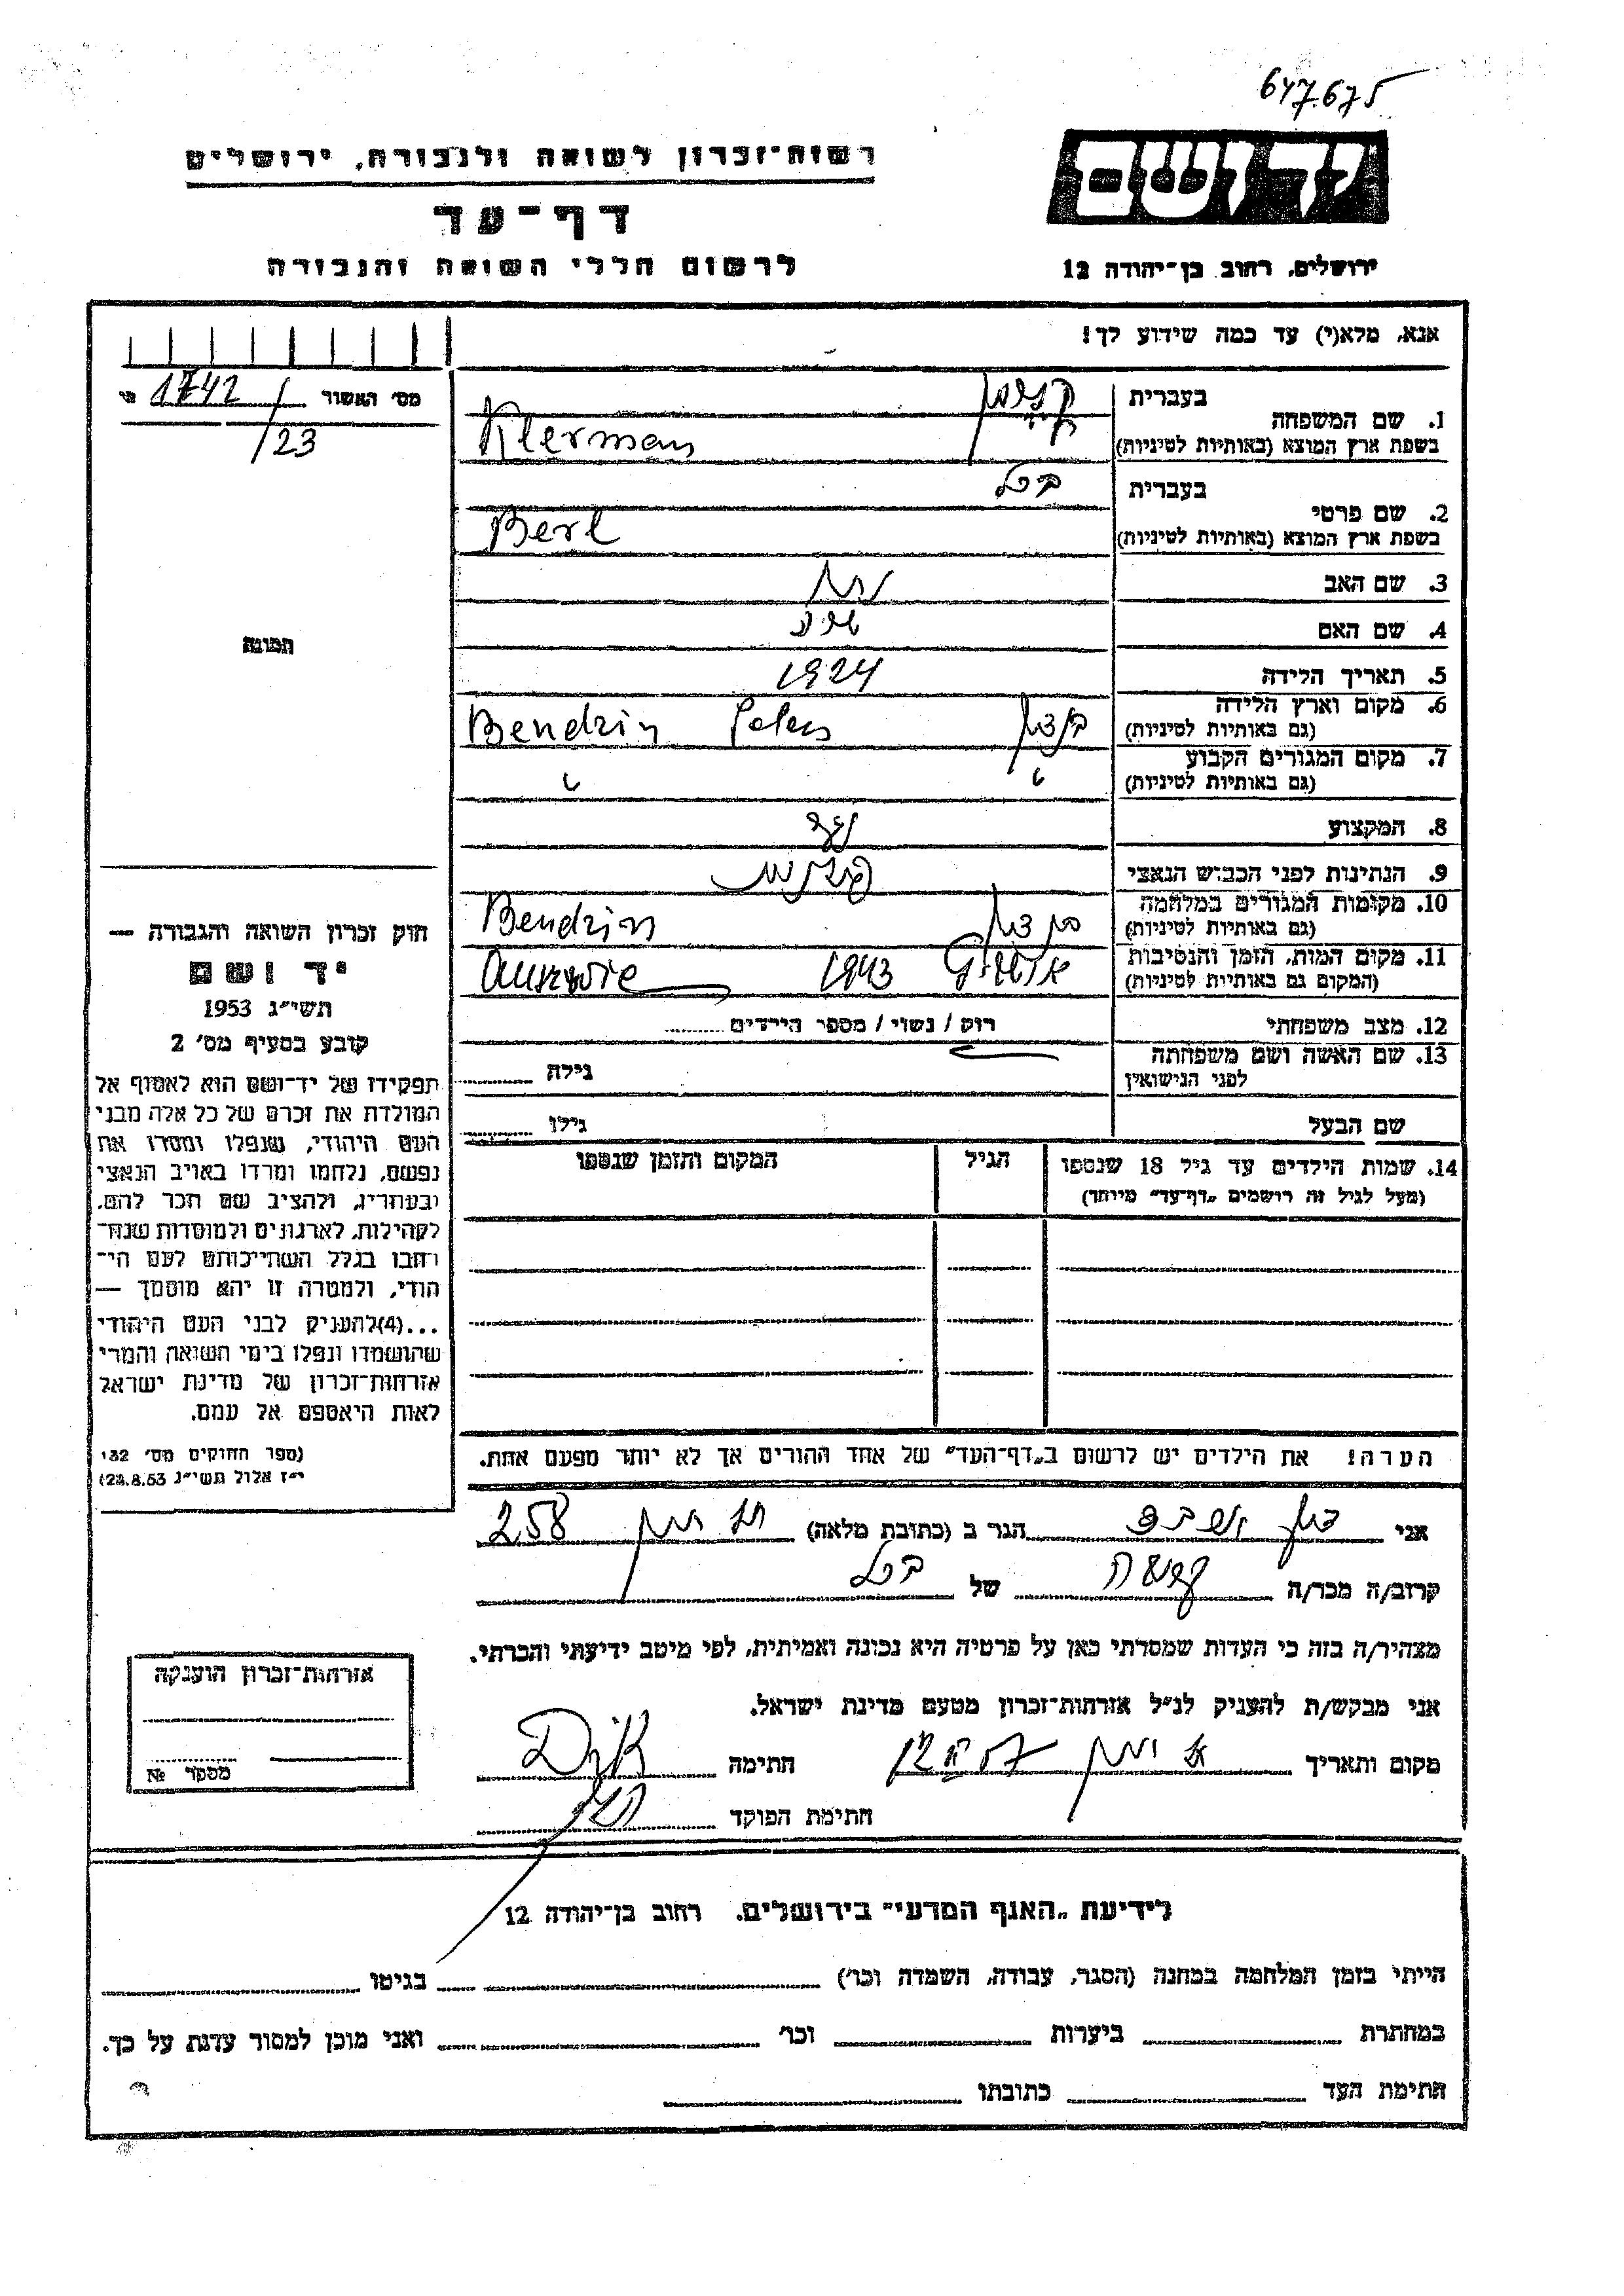 647.675
רשות־זכרון לשואה ולגבורה, ירושלים
דף־עד
לרשום חללי השואה והגבורה
יד ושם
ירושלים, רחוב בן־יהודה 12
אנא, מלא(י) עד כמה שידוע לך!
מס׳ האשור 1742
/23
תמונה
1. שם המשפחה
בעברית
בשפת ארץ המוצא (באותיות לטיניות) Klerman
2. שם פרטי
בעברית ברל
בשפת ארץ המוצא (באותיות לטיניות) Berl
3. שם האב
4. שם האם
5. תאריך הלידה 1924
6. מקום וארץ הלידה
(גם באותיות לטיניות) בנדצין Bendzin
7. מקום המגורים הקבוע
(גם באותיות לטיניות) " "
8. המקצוע
9. הנתינות לפני הכבוש הנאצי
10. מקומות המגורים במלחמה
(גם באותיות לטיניות) בנדצין Bendzin
11. מקום המות, הזמן והנסיבות
(המקום גם באותיות לטיניות) 1943
12. מצב משפחתי רוק / נשוי / מספר הילדים
13. שם האשה ושם משפחתה
לפני הנישואין גילה
שם הבעל גילו
14. שמות הילדים עד גיל 18 שנספו הגיל המקום והזמן שנספו
(מעל לגיל זה רושמים „דף־עד״ מייחד)
הערה! את הילדים יש לרשום ב„דף־העד״ של אחד ההורים אך לא יותר מפעם אחת.
חוק זכרון השואה והגבורה —
יד ושם
תשי״ג 1953
קובע בסעיף מס׳ 2
תפקידו של יד־ושם הוא לאסוף אל
המולדת את זכרם של כל אלה מבני
העם היהודי, שנפלו ומסרו את
נפשם, נלחמו ומרדו באויב הנאצי
ובעוזריו, ולהציב שם וזכר להם,
לקהילות, לארגונים ולמוסדות שנח־
רבו בגלל השתייכותם לעם הי־
הודי, ולמטרה זו יהא מוסמך —
...(4)להעניק לבני העם היהודי
שהושמדו ונפלו בימי השואה והמרי
אזרחות־זכרון של מדינת ישראל
לאות היאספם אל עמם.
(ספר החוקים מס׳ 132
י״ז אלול תשי״ג 28.8.53)
אני הגר ב (כתובת מלאה) 258
קרוב/ה מכר/ה של ברל
מצהיר/ה בזה כי העדות שמסרתי כאן על פרטיה היא נכונה ואמיתית, לפי מיטב ידיעתי והכרתי.
אני מבקש/ת להעניק לנ״ל אזרחות־זכרון מטעם מדינת ישראל.
מקום ותאריך חתימה
חתימת הפוקד
אזרחות־זכרון הוענקה
מספר №
לידיעת „האגף המדעי״ בירושלים, רחוב בן־יהודה 12
הייתי בזמן המלחמה במחנה (הסגר, עבודה, השמדה וכר׳) בגיטו
במחתרת ביערות וכר׳ ואני מוכן למסור עדות על כך.
חתימת העד כתובתו